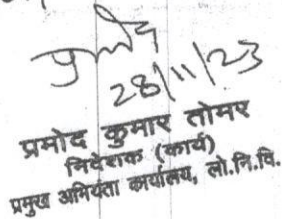 प्रमोद
28/11/23
प्रमोद कुमार तोमर
निदेशक (कार्य)
प्रमुख अभियंता कार्यालय, लो.नि.वि.